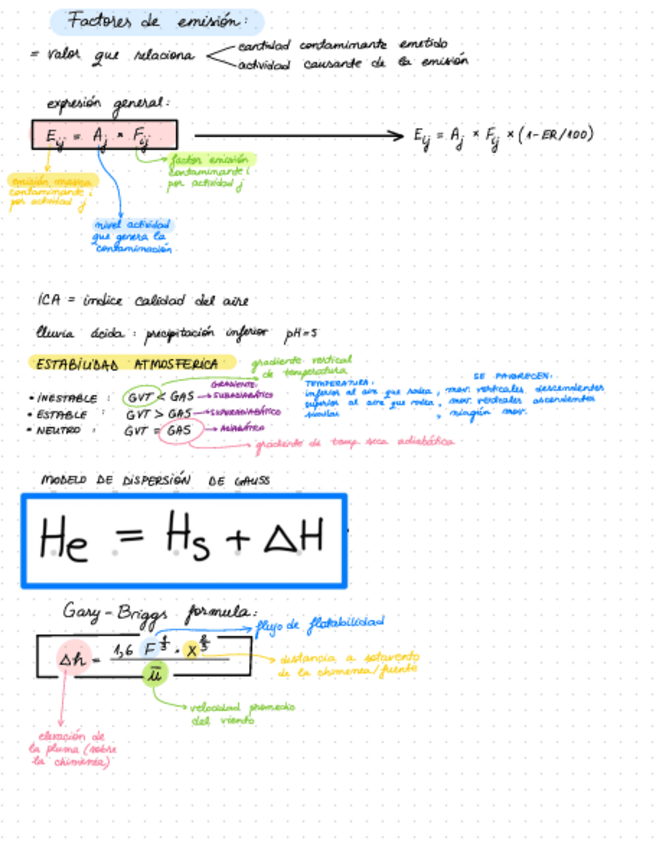 Factores de emisión:
= valor que relaciona
cantidad contaminante emitido
actividad causante de la emisión
expresión general:
Eij = Aj × Fij
Eij = Aj × Fij × (1-ER/100)
factor emisión
contaminante i
por actividad j
emisión masica
contaminante i
por actividad j
nivel actividad
que genera la
contaminación
ICA = indice calidad del aire
lluvia ácida: precipitación inferior pH=5
ESTABILIDAD ATMOSFERICA
gradiente vertical
de temperatura
GRADIENTE
TEMPERATURA:
SE FAVORECEN:
• INESTABLE : GVT < GAS SUBADIABÁTICO inferior al aire que rodea, mov. verticales descendentes
• ESTABLE : GVT > GAS SUPERADIABÁTICO superior al aire que rodea, mov. verticales ascendentes
• NEUTRO : GVT = GAS ADIABÁTICO similar , ningún mov.
gradiente de temp. seca adiabática
MODELO DE DISPERSIÓN DE GAUSS
He = Hs + ΔH
Gary-Briggs formula:
flujo de flotabilidad
Δh = 1,6 F^1/3 · x^2/3 / ū
distancia a sotavento
de la chimenea/fuente
velocidad promedio
del viento
elevación de
la pluma (sobre
la chimenea)